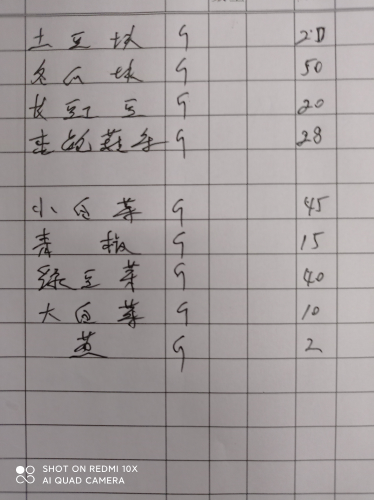 土豆块 G 20
冬瓜块 G 50
长豇豆 G 20
G 28
小白菜 G 45
青椒 G 15
绿豆芽 G 40
大白菜 G 10
G 2
SHOT ON REDMI 10X
AI QUAD CAMERA